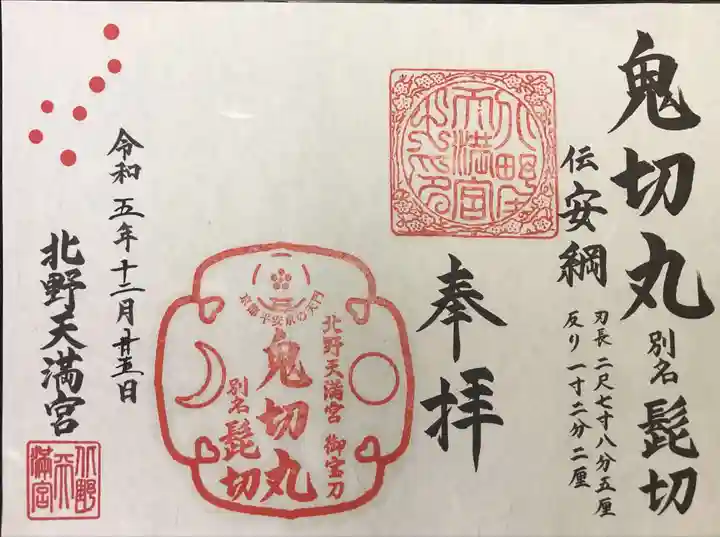 鬼切丸 別名 髭切
伝 安綱
刃長 二尺七寸八分五厘
反り 一寸二分二厘
奉拝
北野天満宮 御宝刀
鬼切丸
別名 髭切
京都 平安京の天門
令和五年十二月廿五日
北野天満宮
北野天満宮